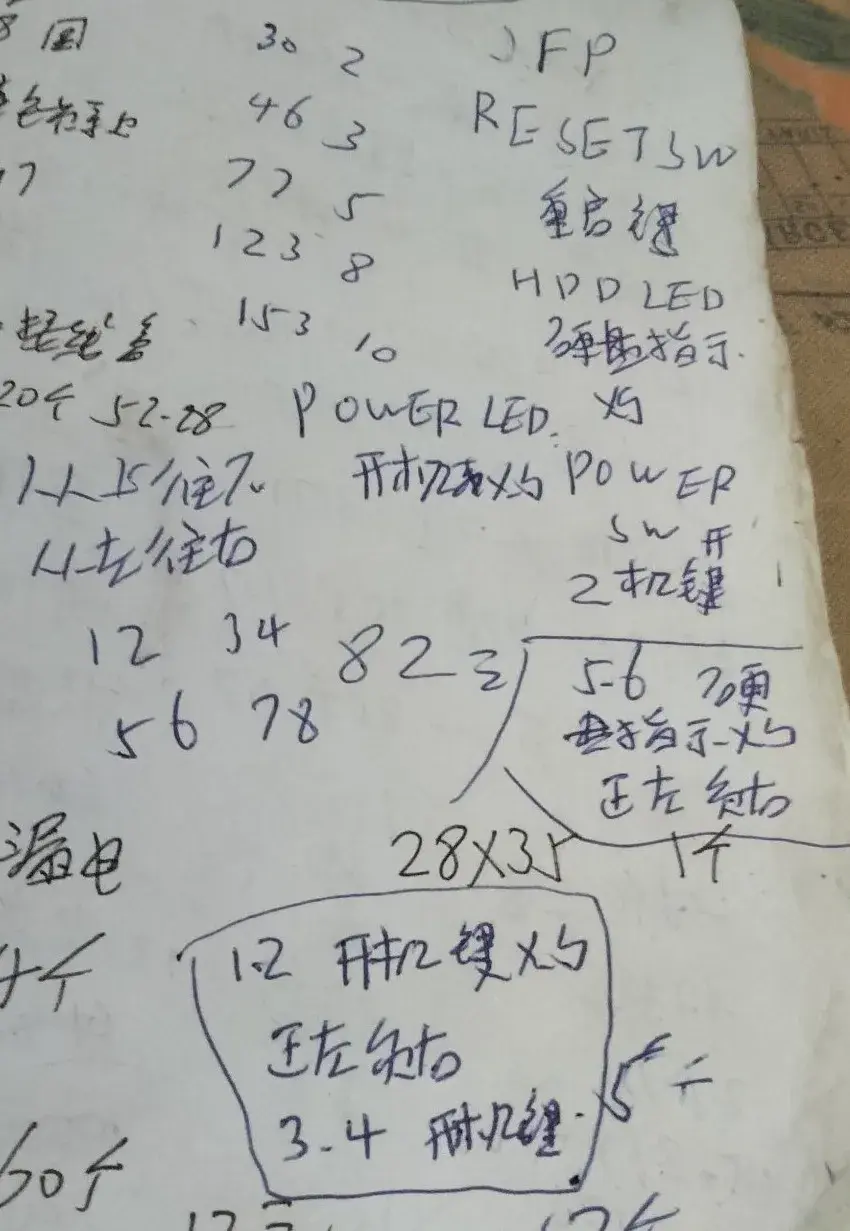 8 国 30 2 JFP
46 3 RESET SW
77 5 重启键
123 8 HDD LED
153 10 硬盘指示
20个 52-28 POWER LED 灯
从上往下 开机灯 POWER
从左往右 SW 开
2 机键
12 34 82
56 78 5-6 硬
盘指示灯
正左负右
漏电 28X35 1个
4个 1.2 开机键灯
正左负右
3.4 开机键
60个